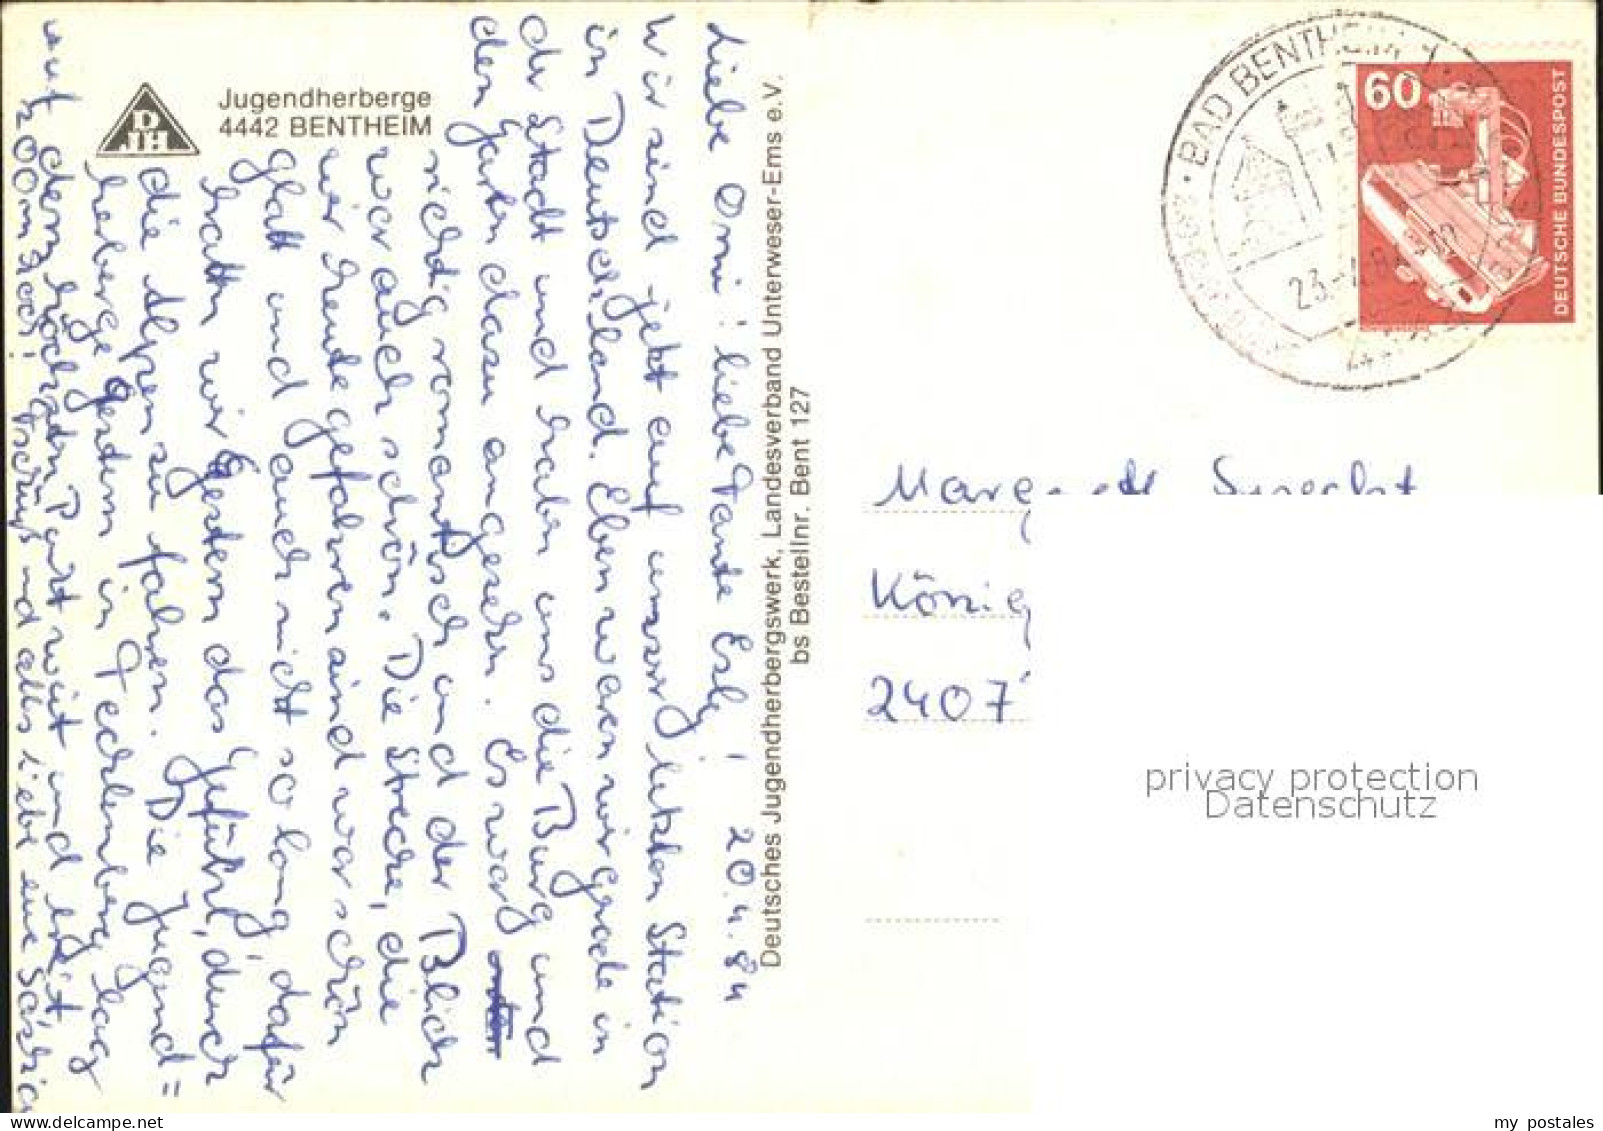 Jugendherberge
4442 BENTHEIM
Liebe Omi! liebe Tante Esly! 20.4.84
Wir sind jetzt auf unsrer letzten Station
in Deutschland. Eben waren wir grade in
der Stadt und haben uns die Burg und
den Garten dazu angesehen. Es war
richtig romantisch und der Blick
war auch schön. Die Strecke, die
wir heute gefahren sind war schön
glatt und auch nicht so lang, dafür
hatten wir gestern das Gefühl, durch
die Alpen zu fahren. Die Jugend=
herberge gestern in Tecklenburg lag
auf dem höchsten Port weit und breit,
200m hoch! Tschüß und alles liebe eure Saskia
Deutsches Jugendherbergswerk, Landesverband Unterweser-Ems e.V.
bs Bestellnr. Bent 127
DJH
BAD BENTHEIM 1
23.-4.84
60
DEUTSCHE BUNDESPOST
Specht
König
2407
privacy protection
Datenschutz
my postales